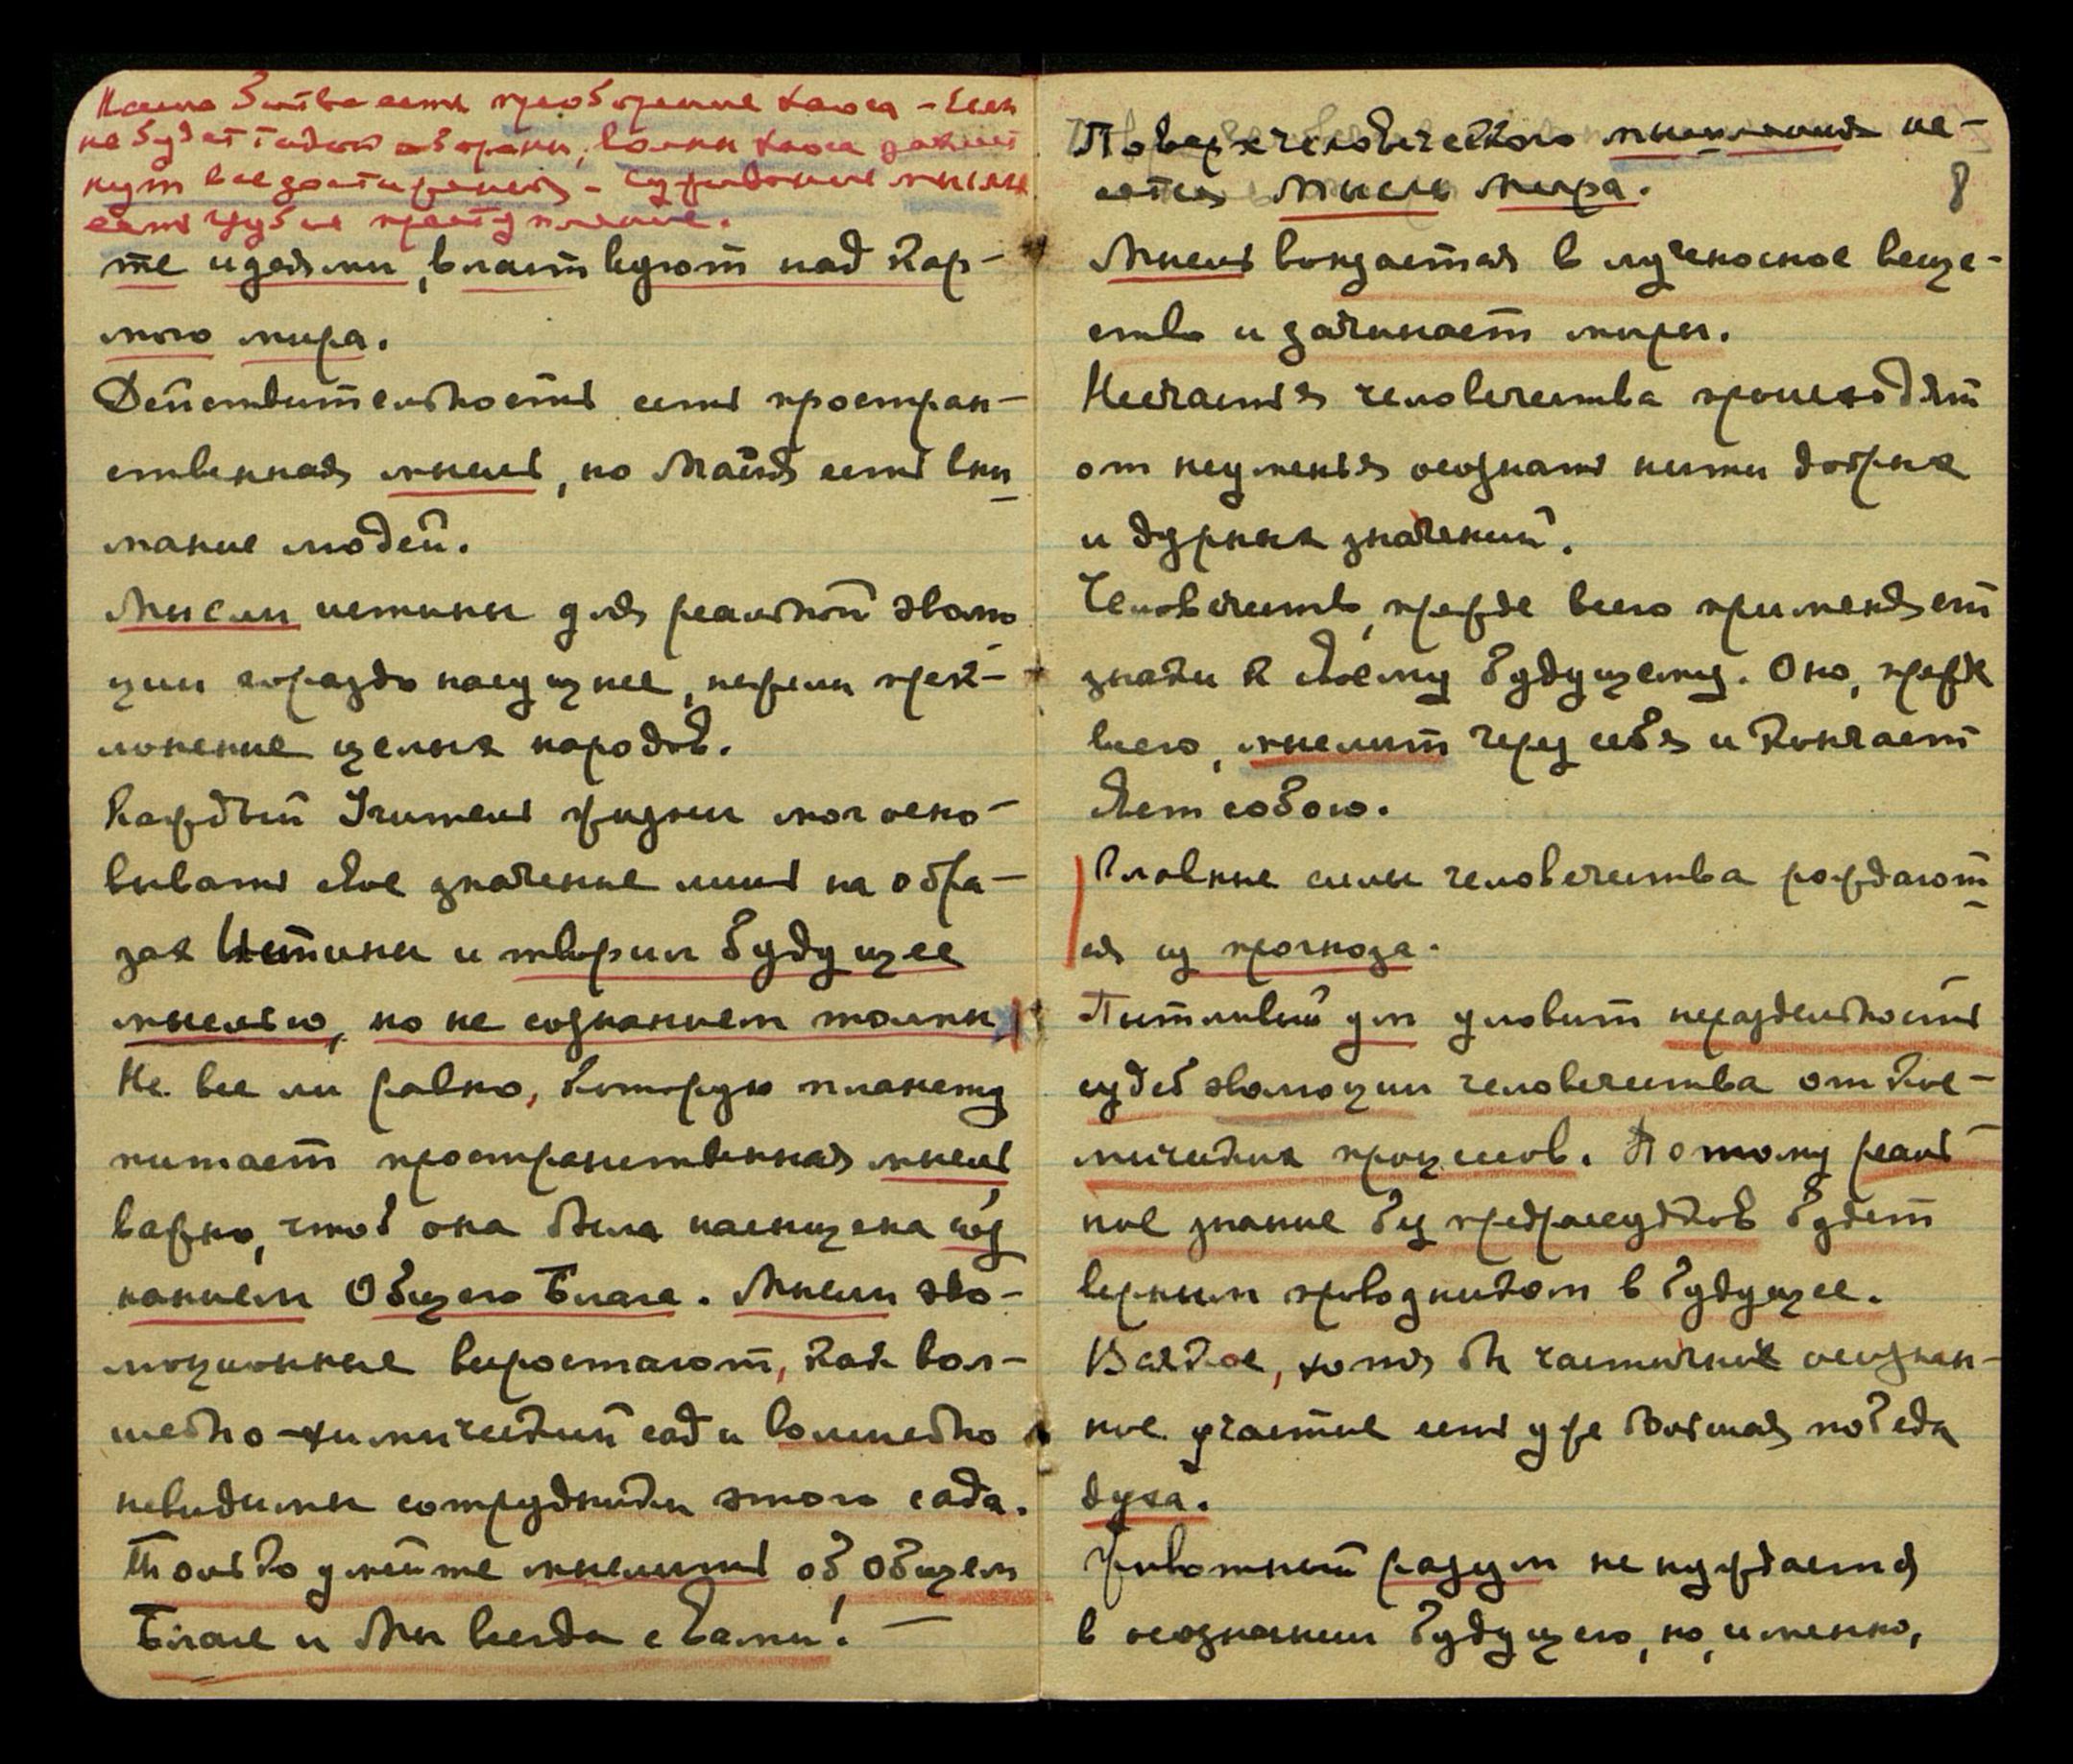 Наша битва есть преоборение хаоса – Если
не будет такой обороны, волны хаоса захлест
нут все достижения –
есть грубое преступление.
те идеями, властвуют над кар-
мою мира.
Действительность есть простран-
ственная мысль, но Майя есть вни
мание людей.
Мысли истины для реальной эволю
ции гораздо насущнее, нежели прек-
лонение целых народов.
Каждый Учитель жизни мог осно-
вывать свое значение лишь на обра-
зах Истины и творил будущее
мыслью, но не сознанием толпы
Не все ли равно, которую планету
питает пространственная мысль,
важно, чтоб она была насыщена соз
нанием Общего Блага. Мысли эво-
люционные выростают, как вол-
шебно-химический сад и волшебно
невидимы сотрудники этого сада.
Только умейте мыслить об Общем
Благе и Мы всегда с вами! —
Поверх человеческого мышления не-
сется мысль мира.
8
Мысль вонзается в лученосное веще-
ство и зачинает миры.
Несчастья человечества происходят
от неуменья осознать нити добрых
и дурных значений.
Человечество, прежде всего применяет
знаки к своему будущему. Оно, прежде
всего, мыслит через себя и кончает
свет собою.
Главные силы человечества рождают
ся из прогноза.
Пытливый ум уловит нераздельность
судеб эволюции человечества от кос-
мических процессов. Потому реаль
ное знание без предрассудков будет
верным проводником в будущее.
Всякое, хотя бы частичное осознан-
ное участие есть уже большая победа
духа.
Животный разум не нуждается
в осознании будущего, но, именно,